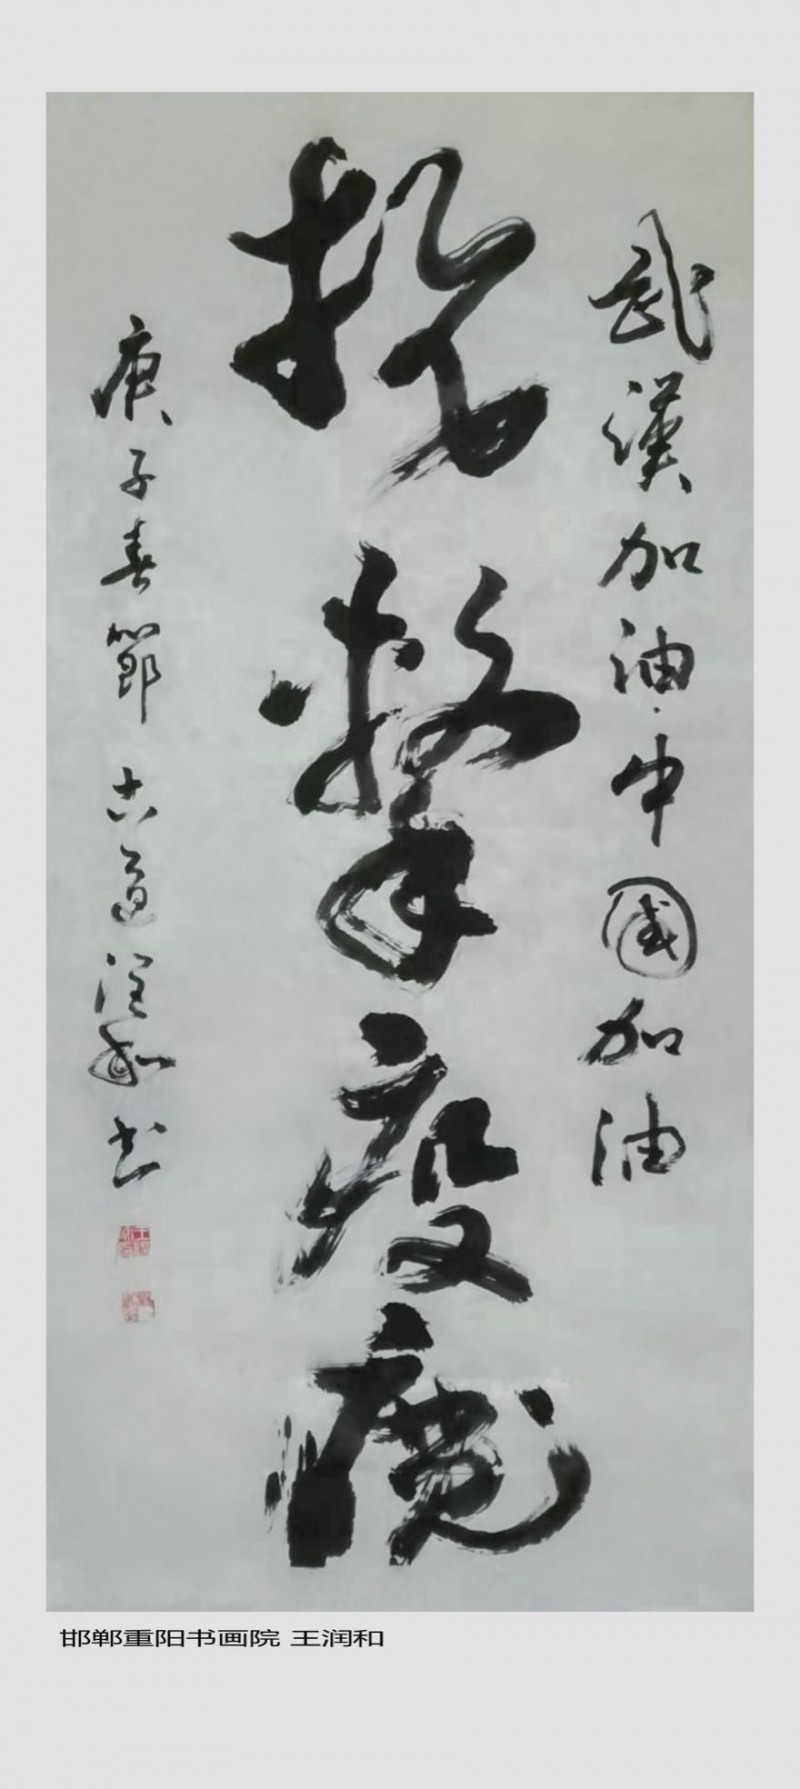 武漢加油·中國加油
抗擊疫魔
庚子春節 古道潤和书
邯郸重阳书画院 王润和